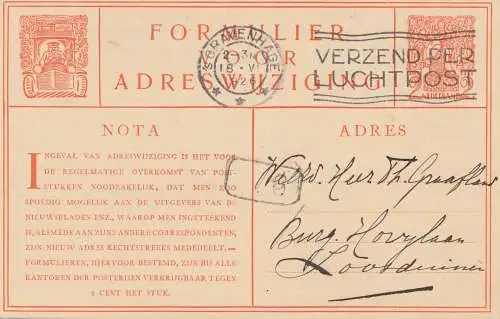 FORMULIER
VOOR
ADRESWIJZIGING
'S-GRAVENHAGE
18 VI
1926
VERZEND PER
LUCHTPOST
NEDERLAND
NOTA
INGEVAL VAN ADRESWIJZIGING IS HET VOOR
DE REGELMATIGE OVERKOMST VAN POST-
STUKKEN NOODZAKELIJK, DAT MEN ZOO
SPOEDIG MOGELIJK AAN DE UITGEVERS VAN DE
NIEUWSBLADEN ENZ., WAAROP MEN INGETEEKEND
IS, ALSMEDE AAN ZIJNE ANDERE CORRESPONDENTEN,
ZIJN NIEUW ADRES RECHTSTREEKS MEDEDEELT.—
FORMULIEREN, HIERVOOR BESTEMD, ZIJN BIJ ALLE
KANTOREN DER POSTERIJEN VERKRIJGBAAR TEGEN
1 CENT HET STUK.
ADRES
Heer Th. Graafland
Burg. Hovylaan
Loosduinen